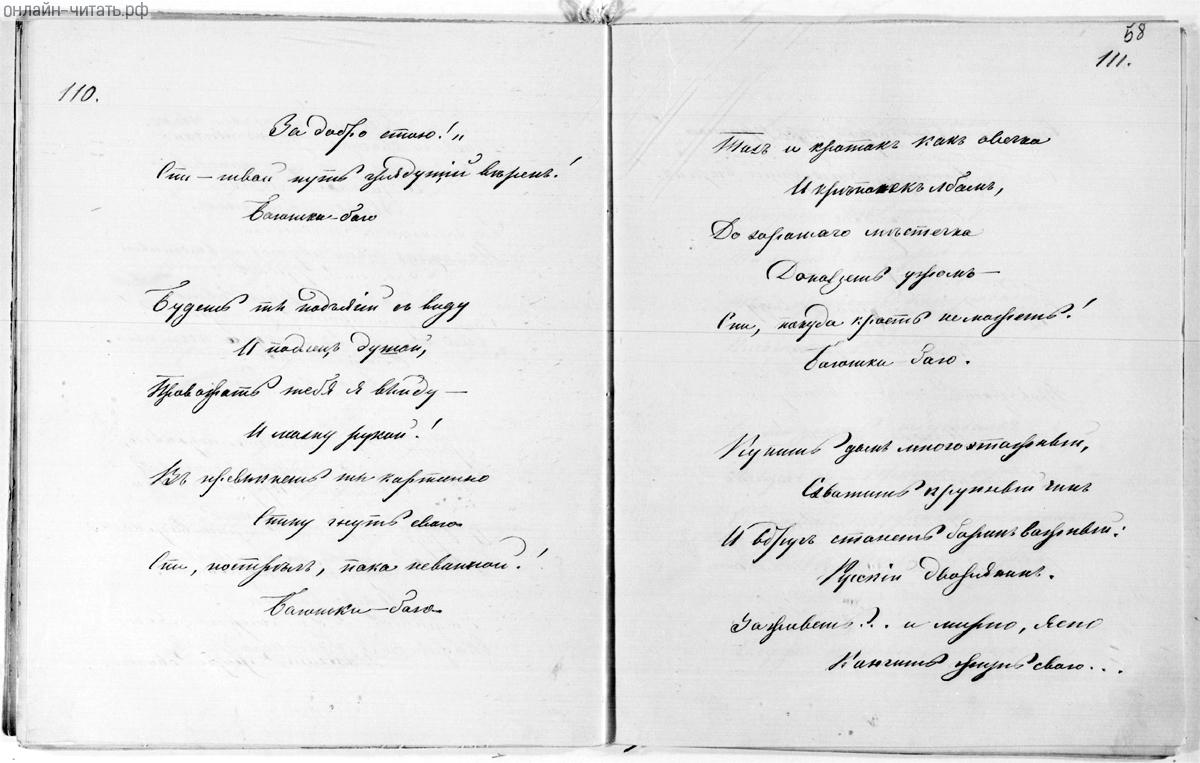 онлайн-читать.рф
110.
За добро стою!„
Спи – твой путь грядущій вѣренъ!
Баюшки-баю
Будешь ты чиновникъ съ виду
И подлецъ душой,
Провожать тебя я выйду —
И махну рукой!
Въ
привыкнешь ты картинно
Спину гнуть свою
Спи, пострѣлъ, пока невинной!
Баюшки-баю
58
111.
Тихъ и кротокъ какъ овечка
И крѣпонекъ лбомъ,
До хорошаго мѣстечка
Доползешь ужомъ —
Спи, покуда красть не можешь!
Баюшки баю.
Купишь домъ многоэтажный,
Схватишь крупный чинъ
И вдругъ станешь баринъ важный:
Русскій дворянинъ.
Заживешь?.. и мирно, ясно
Кончишь жизнь свою...